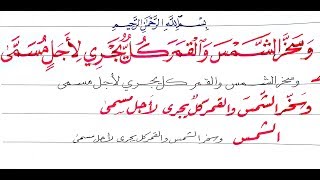 بسم الله الرحمن الرحيم
وَسَخَّرَ الشَّمْسَ وَالْقَمَرَ كُلٌّ يَّجْرِي لِأَجَلٍ مُّسَمًّى
وسخر الشمس والقمر كل يجري لأجل مسمى
وسخّر الشمس والقمر كل يجرى لأجل مسمى
الشمس وسخر الشمس والقمر كل يجرى لأجل مسمى